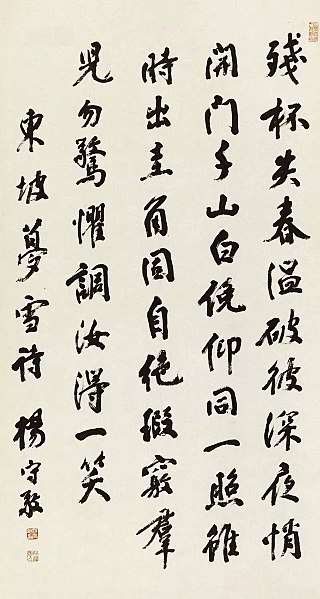 殘杯失春溫破被深夜悄
開門千山白俛仰同一照雖
時出圭角固自絕瑕竅羣
児勿驚懼調汝得一笑
東坡夢雪詩 楊守敬